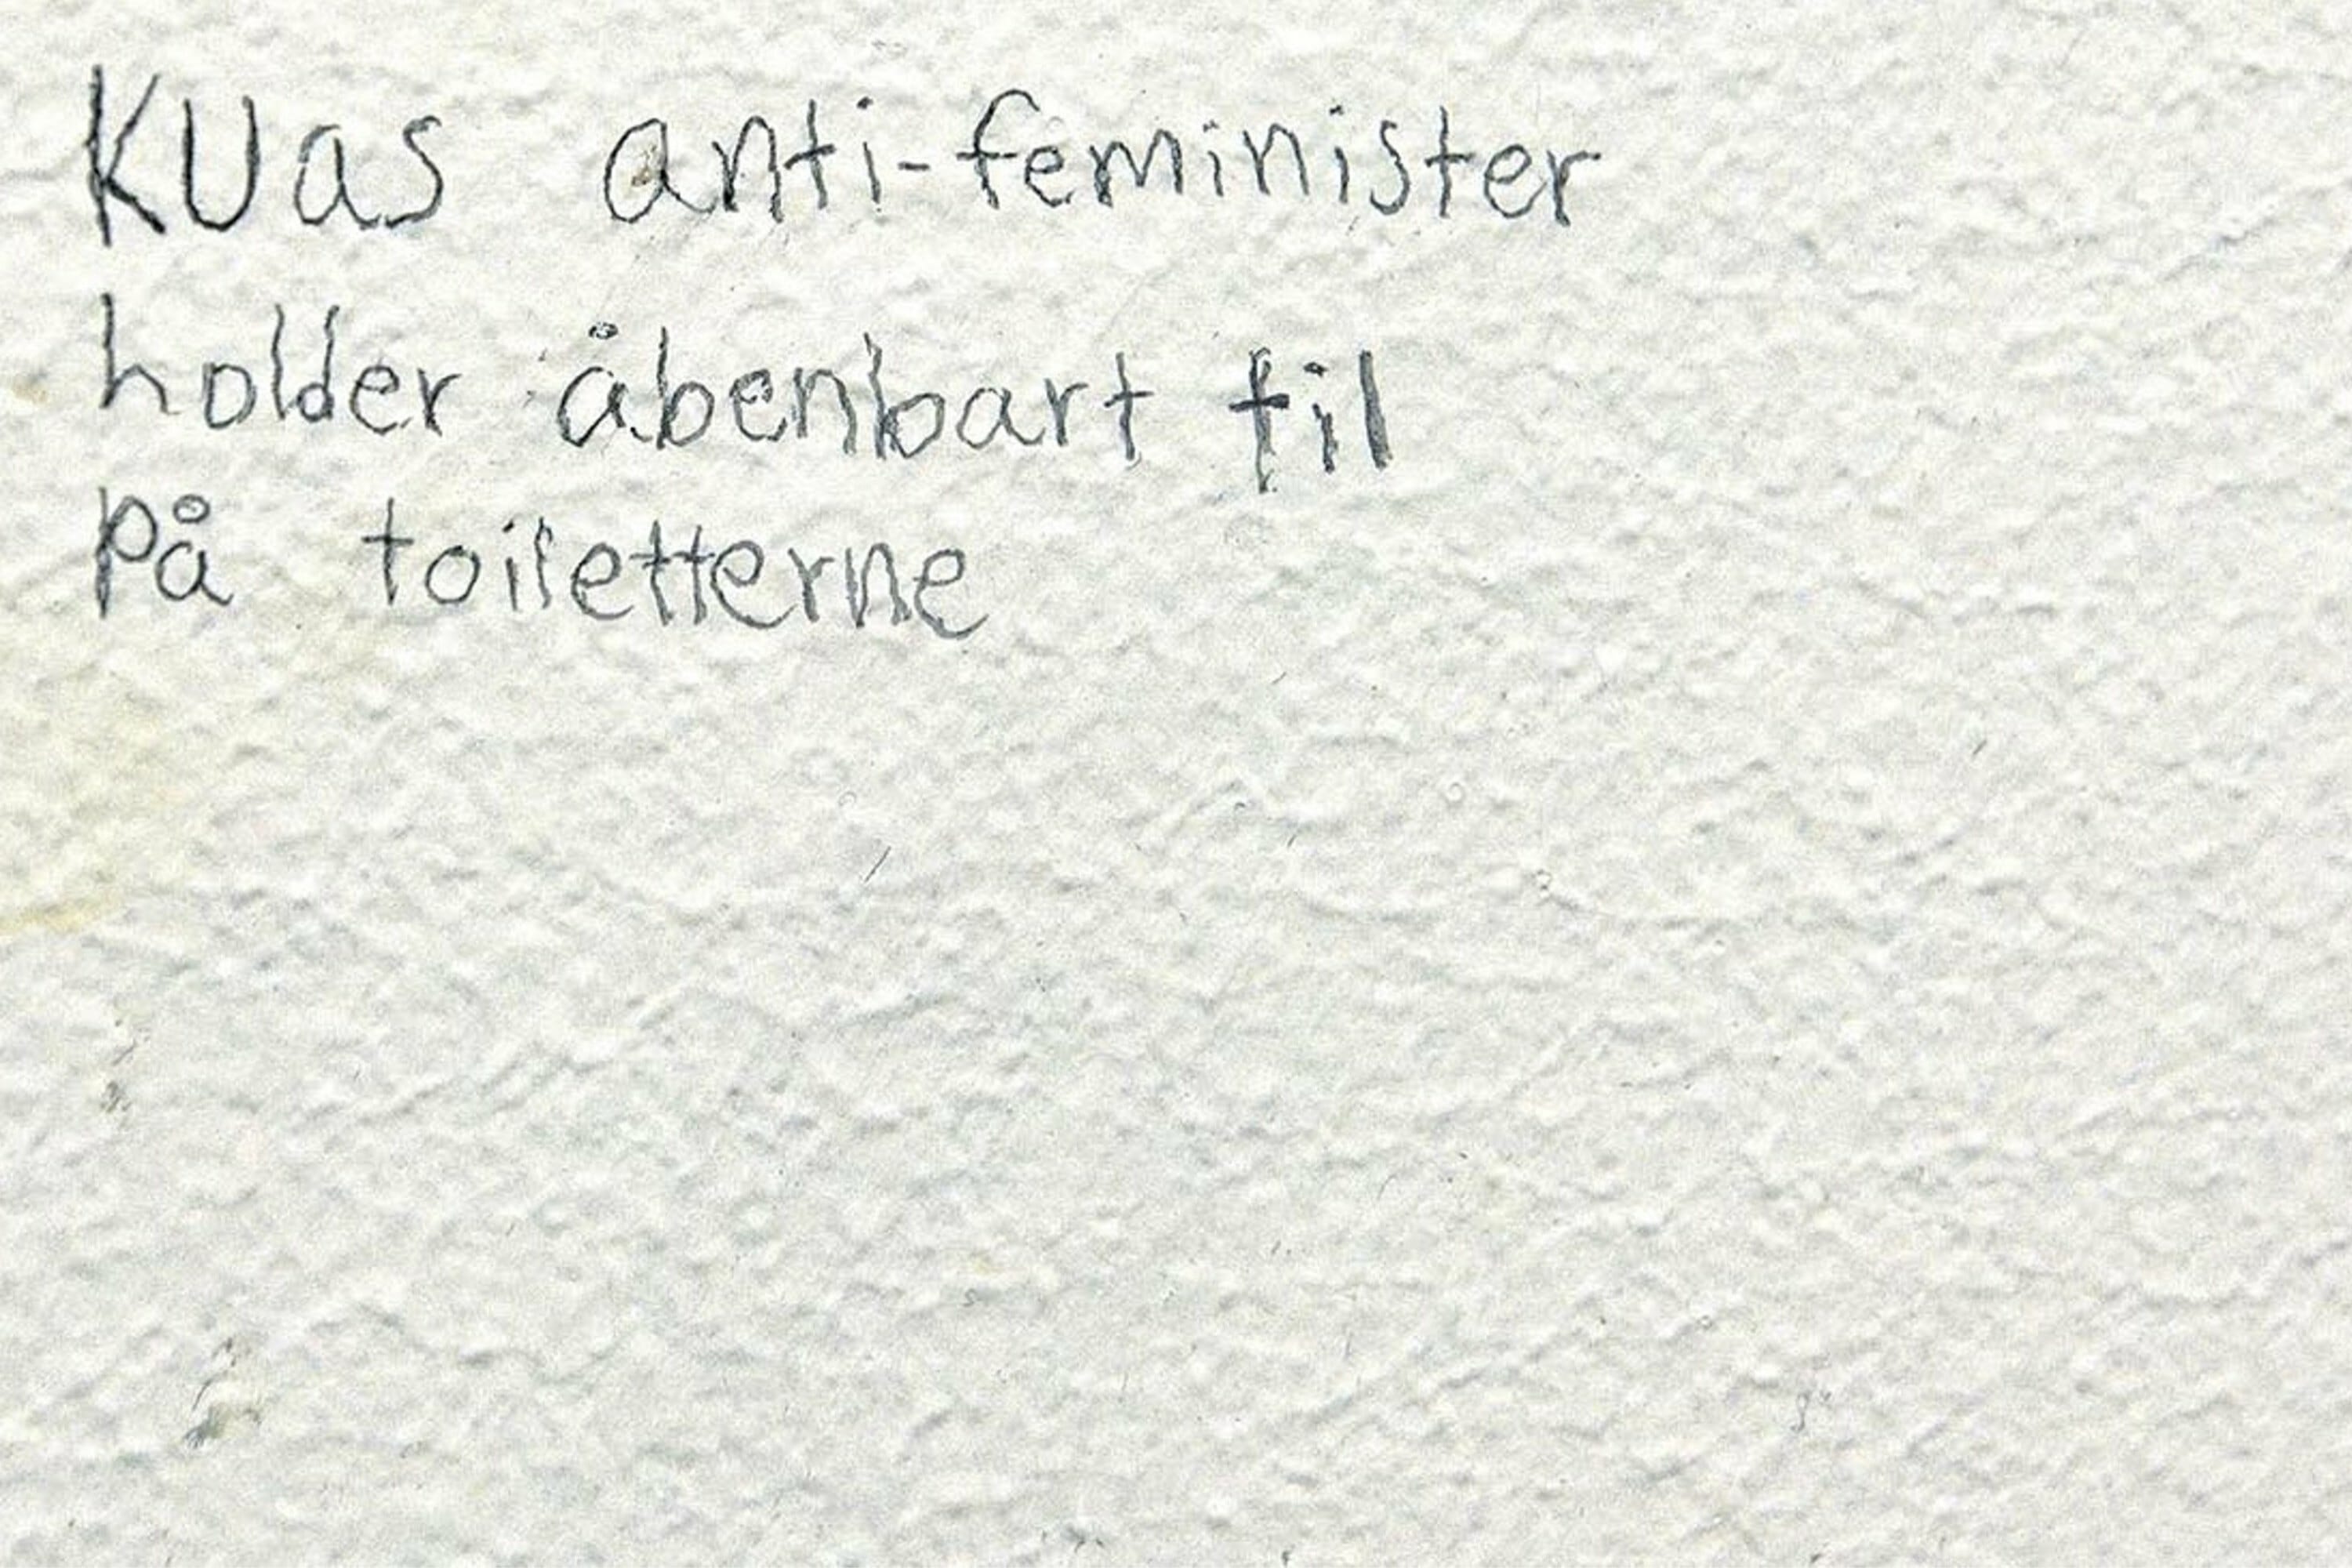 KUas anti-feminister
holder åbenbart til
på toiletterne